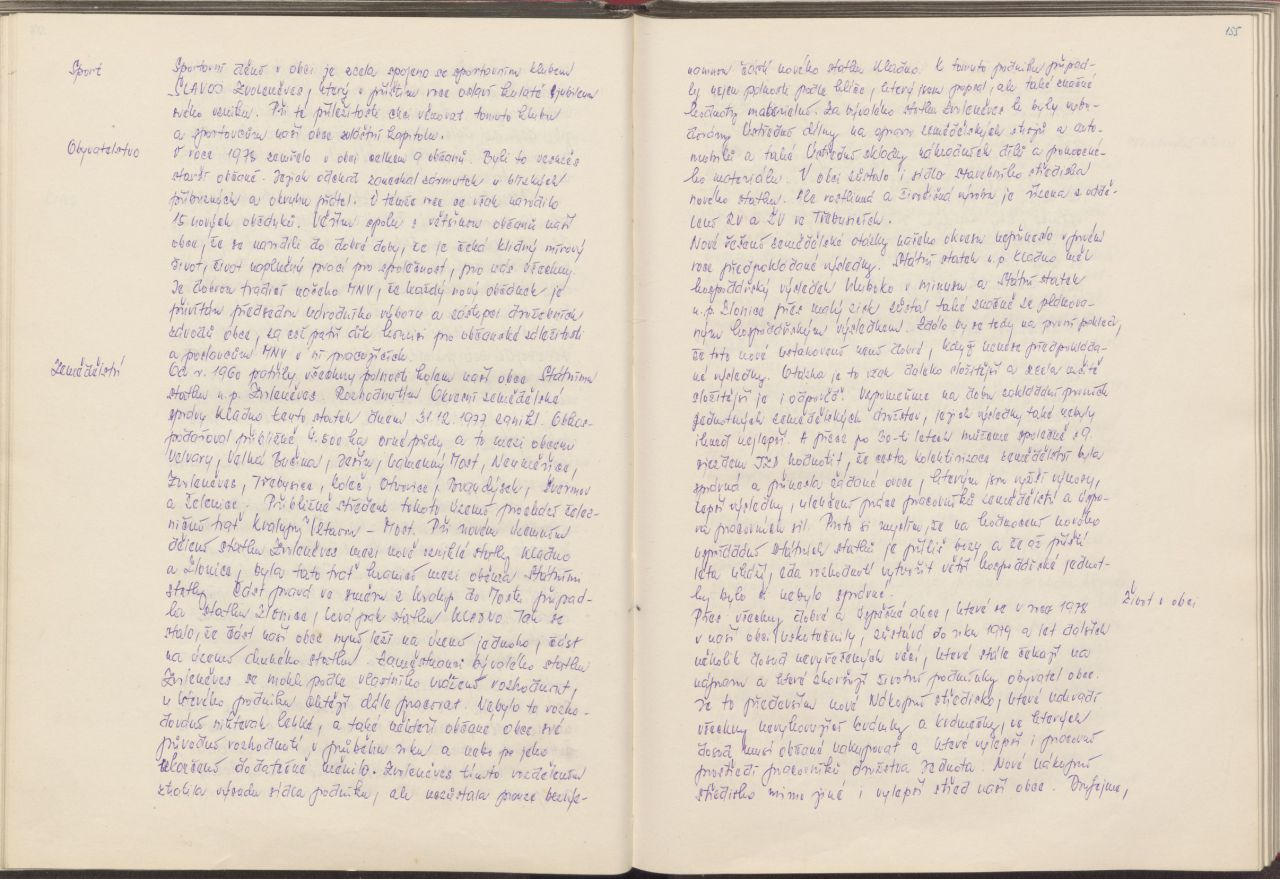 Sport
Sportovní dění v obci je zcela spojeno se sportovním klubem
SLAVOJ Zvoleněves, který v příštím roce oslaví kulaté jubileum
svého vzniku. Při té příležitosti chci věnovat tomuto klubu
a sportovcům naší obce zvláštní kapitolu.
Obyvatelstvo
V roce 1978 zemřelo v obci celkem 9 občanů. Byli to vesměs
starší občané. Jejich odchod zanechal zármutek u blízkých
příbuzných a okruhu přátel. V témže roce se však narodilo
15 nových občánků. Věřím spolu s většinou občanů naší
obce, že se narodili do dobré doby, že je čeká klidný mírový
život, život naplněný prací pro společnost, pro nás všechny.
Je dobrou tradicí našeho MNV, že každý nový občánek je
přivítán předsedou národního výboru a zástupci družebních
závodů obce, za což patří dík komisi pro občanské záležitosti
a poslancům MNV v ní pracujících.
Zemědělství
Od r. 1960 patřily všechny polnosti kolem naší obce Státnímu
statku n.p. Zvoleněves. Rozhodnutím Okresní zemědělské
správy Kladno tento statek dnem 31.12.1977 zanikl. Obhos-
podařoval přibližně 4.500 ha orné půdy a to mezi obcemi
Velvary, Velká Bučina, Ješín, Kamenný Most, Neuměřice,
Zvoleněves, Třebusice, Koleč, Otvovice, Brandýsek, Švermov
a Želenice. Přibližně středem tohoto území prochází želez-
niční trať Kralupy Vltavou - Most. Při novém územním
dělení statku Zvoleněves mezi nově vzniklé statky Kladno
a Zlonice, byla tato trať hranicí mezi oběma Státními
statky. Část pravá ve směru z Kralup do Mostu připad-
la statku Zlonice, levá pak statku KLADNO. Tak se
stalo, že část naší obce nyní leží na území jednoho, část
na území druhého statku. Zaměstnanci bývalého statku
Zvoleněves se mohli podle vlastního uvážení rozhodnout,
u kterého podniku chtějí dále pracovat. Nebylo to rozho-
dování nikterak lehké, a také někteří občané obce své
původní rozhodnutí v průběhu roku a nebo po jeho
skončení dodatečně měnili. Zvoleněves tímto rozdělením
ztratila výsadu sídla podniku, ale nezůstala pouze
155
nového statku Kladno. K tomuto podniku připad-
ly nejen polnosti podle klíče, který jsem popsal, ale také značné
hodnoty materiální. Za bývalého statku Zvoleněves tu byly vybu-
dovány Ústřední dílny na opravu zemědělských strojů a auto-
mobilů a také Ústřední sklady náhradních dílů a pomocné-
ho materiálu. V obci zůstalo i sídlo stavebního střediska
nového statku. Ale rostlinná a živočišná výroba je řízena z oddě-
lení RV a ŽV ve Třebusicích.
Nové řešení zemědělské otázky našeho okresu nepřineslo v prvním
roce předpokládané výsledky. Státní statek n.p. Kladno měl
hospodářský výsledek hluboko v minusu a Státní statek
n.p. Zlonice přes malý zisk zůstal také značně za plánova-
ným hospodářským výsledkem. Zdálo by se tedy na první pohled,
že toto nové ustanovení není dobré, když nenese předpokláda-
né výsledky. Otázka je to však daleko složitější a zcela určitě
složitější je i odpověď. Vzpomeňme na dobu zakládání prvních
Jednotných zemědělských družstev, jejich výsledky také nebyly
ihned nejlepší. A přece po 30-ti letech můžeme společně s 9.
sjezdem JZD hodnotit, že cesta kolektivizace zemědělství byla
správná a přinesla žádané ovoce, kterým jsou vyšší výnosy,
lepší výsledky, ulehčení práce pracovníků zemědělství a úspo-
ra pracovních sil. Proto si myslím, že na hodnocení nového
uspořádání státních statků je příliš brzy a že až příští
léta ukáží, zda rozhodnutí vytvořit větší hospodářské jednot-
ky bylo či nebylo správné.
Život v obci
Přes všechny dobré a úspěšné akce, které se v roce 1978
v naší obci uskutečnily, zůstává do roku 1979 a let dalších
několik dosud nevyřešených věcí, které stále čekají na
nápravu a které zhoršují životní podmínky obyvatel obce.
Je to především nové Nákupní středisko, které nahradí
všechny nevyhovující krámky a krámečky, ve kterých
dosud musí občané nakupovat a které vylepší i pracovní
prostředí pracovníků družstva Jednota. Nové nákupní
středisko mimo jiné i vylepší střed naší obce. Doufejme,